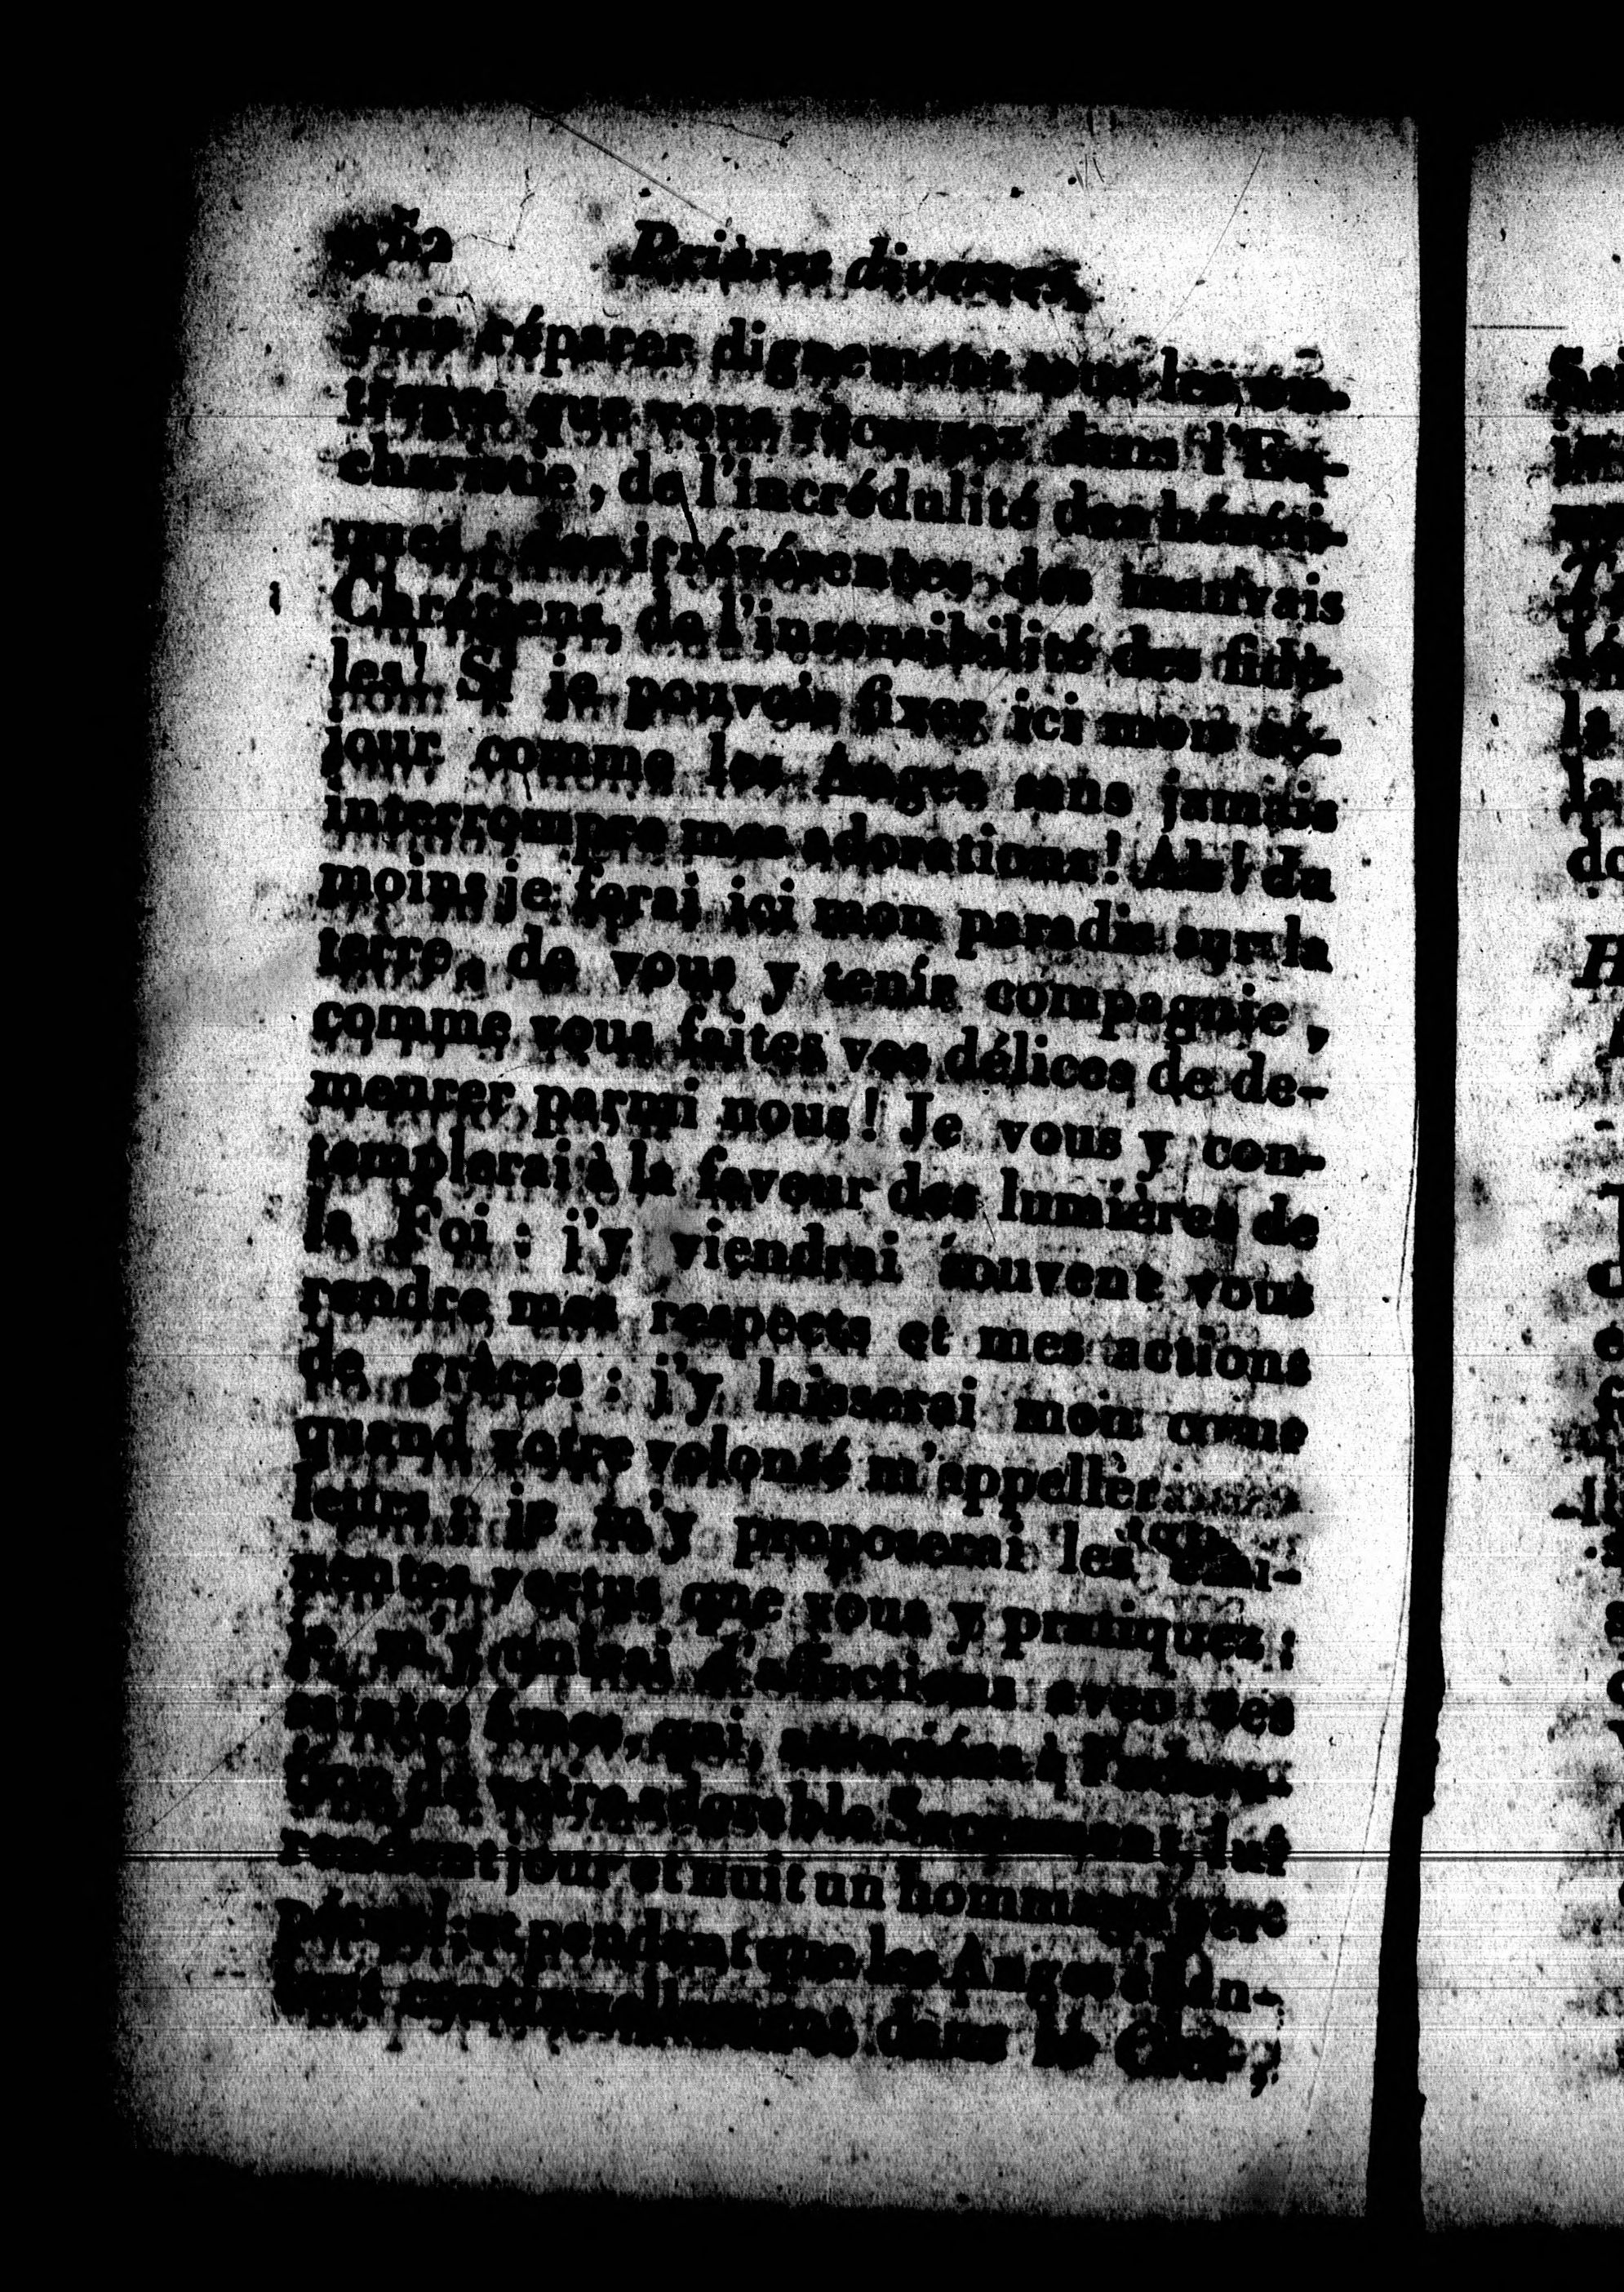 Prières diverses.
rois réparer dignement tous les ou-
trages que vous recevez dans l'Eu-
charistie, de l'incrédulité des héréti-
ques, des irrévérences des mauvais
Chrétiens, de l'insensibilité des fidè-
les! Si je pouvois fixer ici mon sé-
jour comme les Anges sans jamais
interrompre mes adorations! Ah! du
moins je ferai ici mon paradis sur la
terre, de vous y tenir compagnie,
comme vous faites vos délices de de-
meurer parmi nous! Je vous y con-
templerai à la faveur des lumières de
la Foi : j'y viendrai souvent vous
rendre mes respects et mes actions
de grâces : j'y laisserai mon cœur
quand votre volonté m'appellera
leurs : je m'y proposerai les émi-
nentes vertus que vous y pratiquez :
je m'y unirai d'affections avec ces
saintes âmes, qui, associées à l'adora-
tion de votre adorable Sacrement, lui
rendent jour et nuit un hommage per-
pétuel, et pendant que les Anges chan-
tent continuellement dans le Ciel,